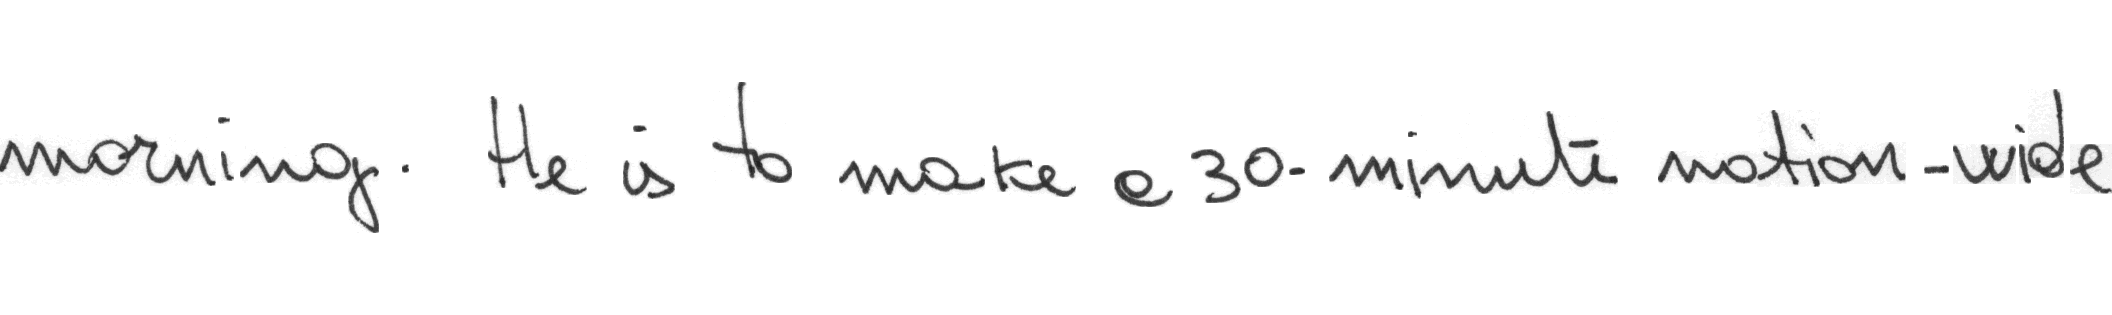 morning. He is to make a 30-minute nation-wide